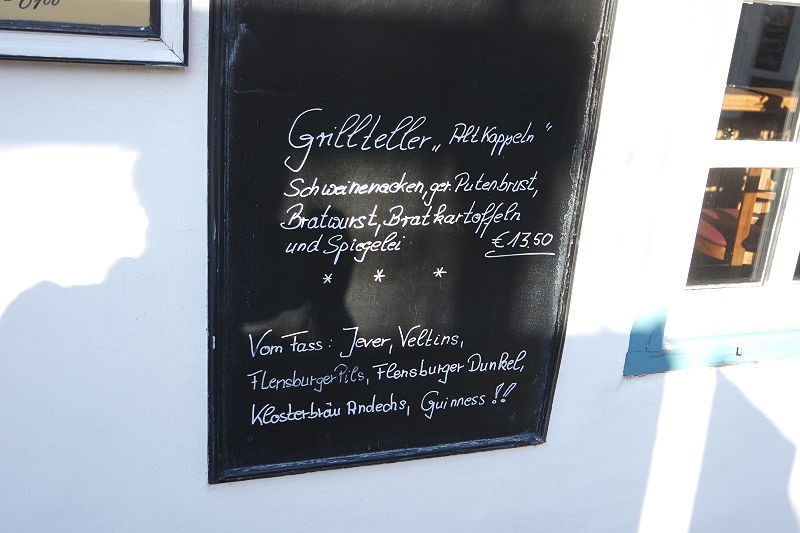 Grillteller „Alt Kappeln"
Schweinenacken, ger. Putenbrust,
Bratwurst, Bratkartoffeln
und Spiegelei
€ 13.50
* * *
Vom Fass: Jever, Veltins,
Flensburger Pils, Flensburger Dunkel,
Klosterbräu Andechs, Guinness !!